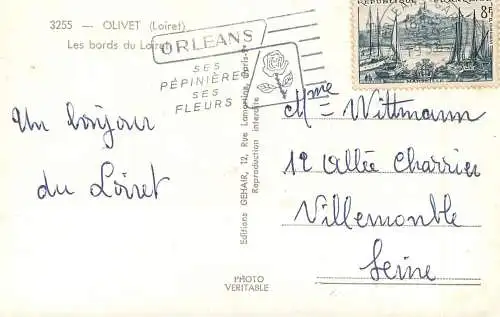 3255 — OLIVET (Loiret)
Les bords du Loiret
ORLEANS
SES
PÉPINIÈRES
SES
FLEURS
RÉPUBLIQUE FRANÇAISE
8F
MARSEILLE
Un bonjour
du Loiret
Editions GEHAIR, 12, Rue Lamartine, Paris-9e
Reproduction interdite
PHOTO
VERITABLE
Mme Wittmann
12 allée Charrier
Villemomble
Seine